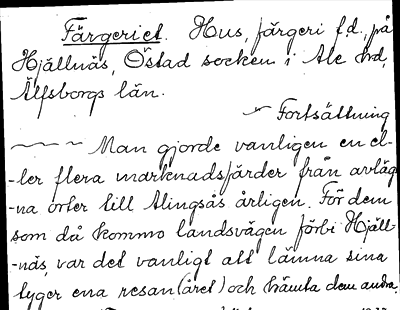 Färgeriet. Hus, färgeri f.d., på
Hjällnäs, Östad socken i Ale hd,
Älfsborgs län.
Fortsättning
~ ~ ~ Man gjorde vanligen en el-
-ler flera marknadsfärder från avläg
-na orter till Alingsås årligen. För dem
som då kommo landsvägen förbi Hjäll-
-näs, var det vanligt att lämna sina
tyger ena resan (året) och hämta dem andra.